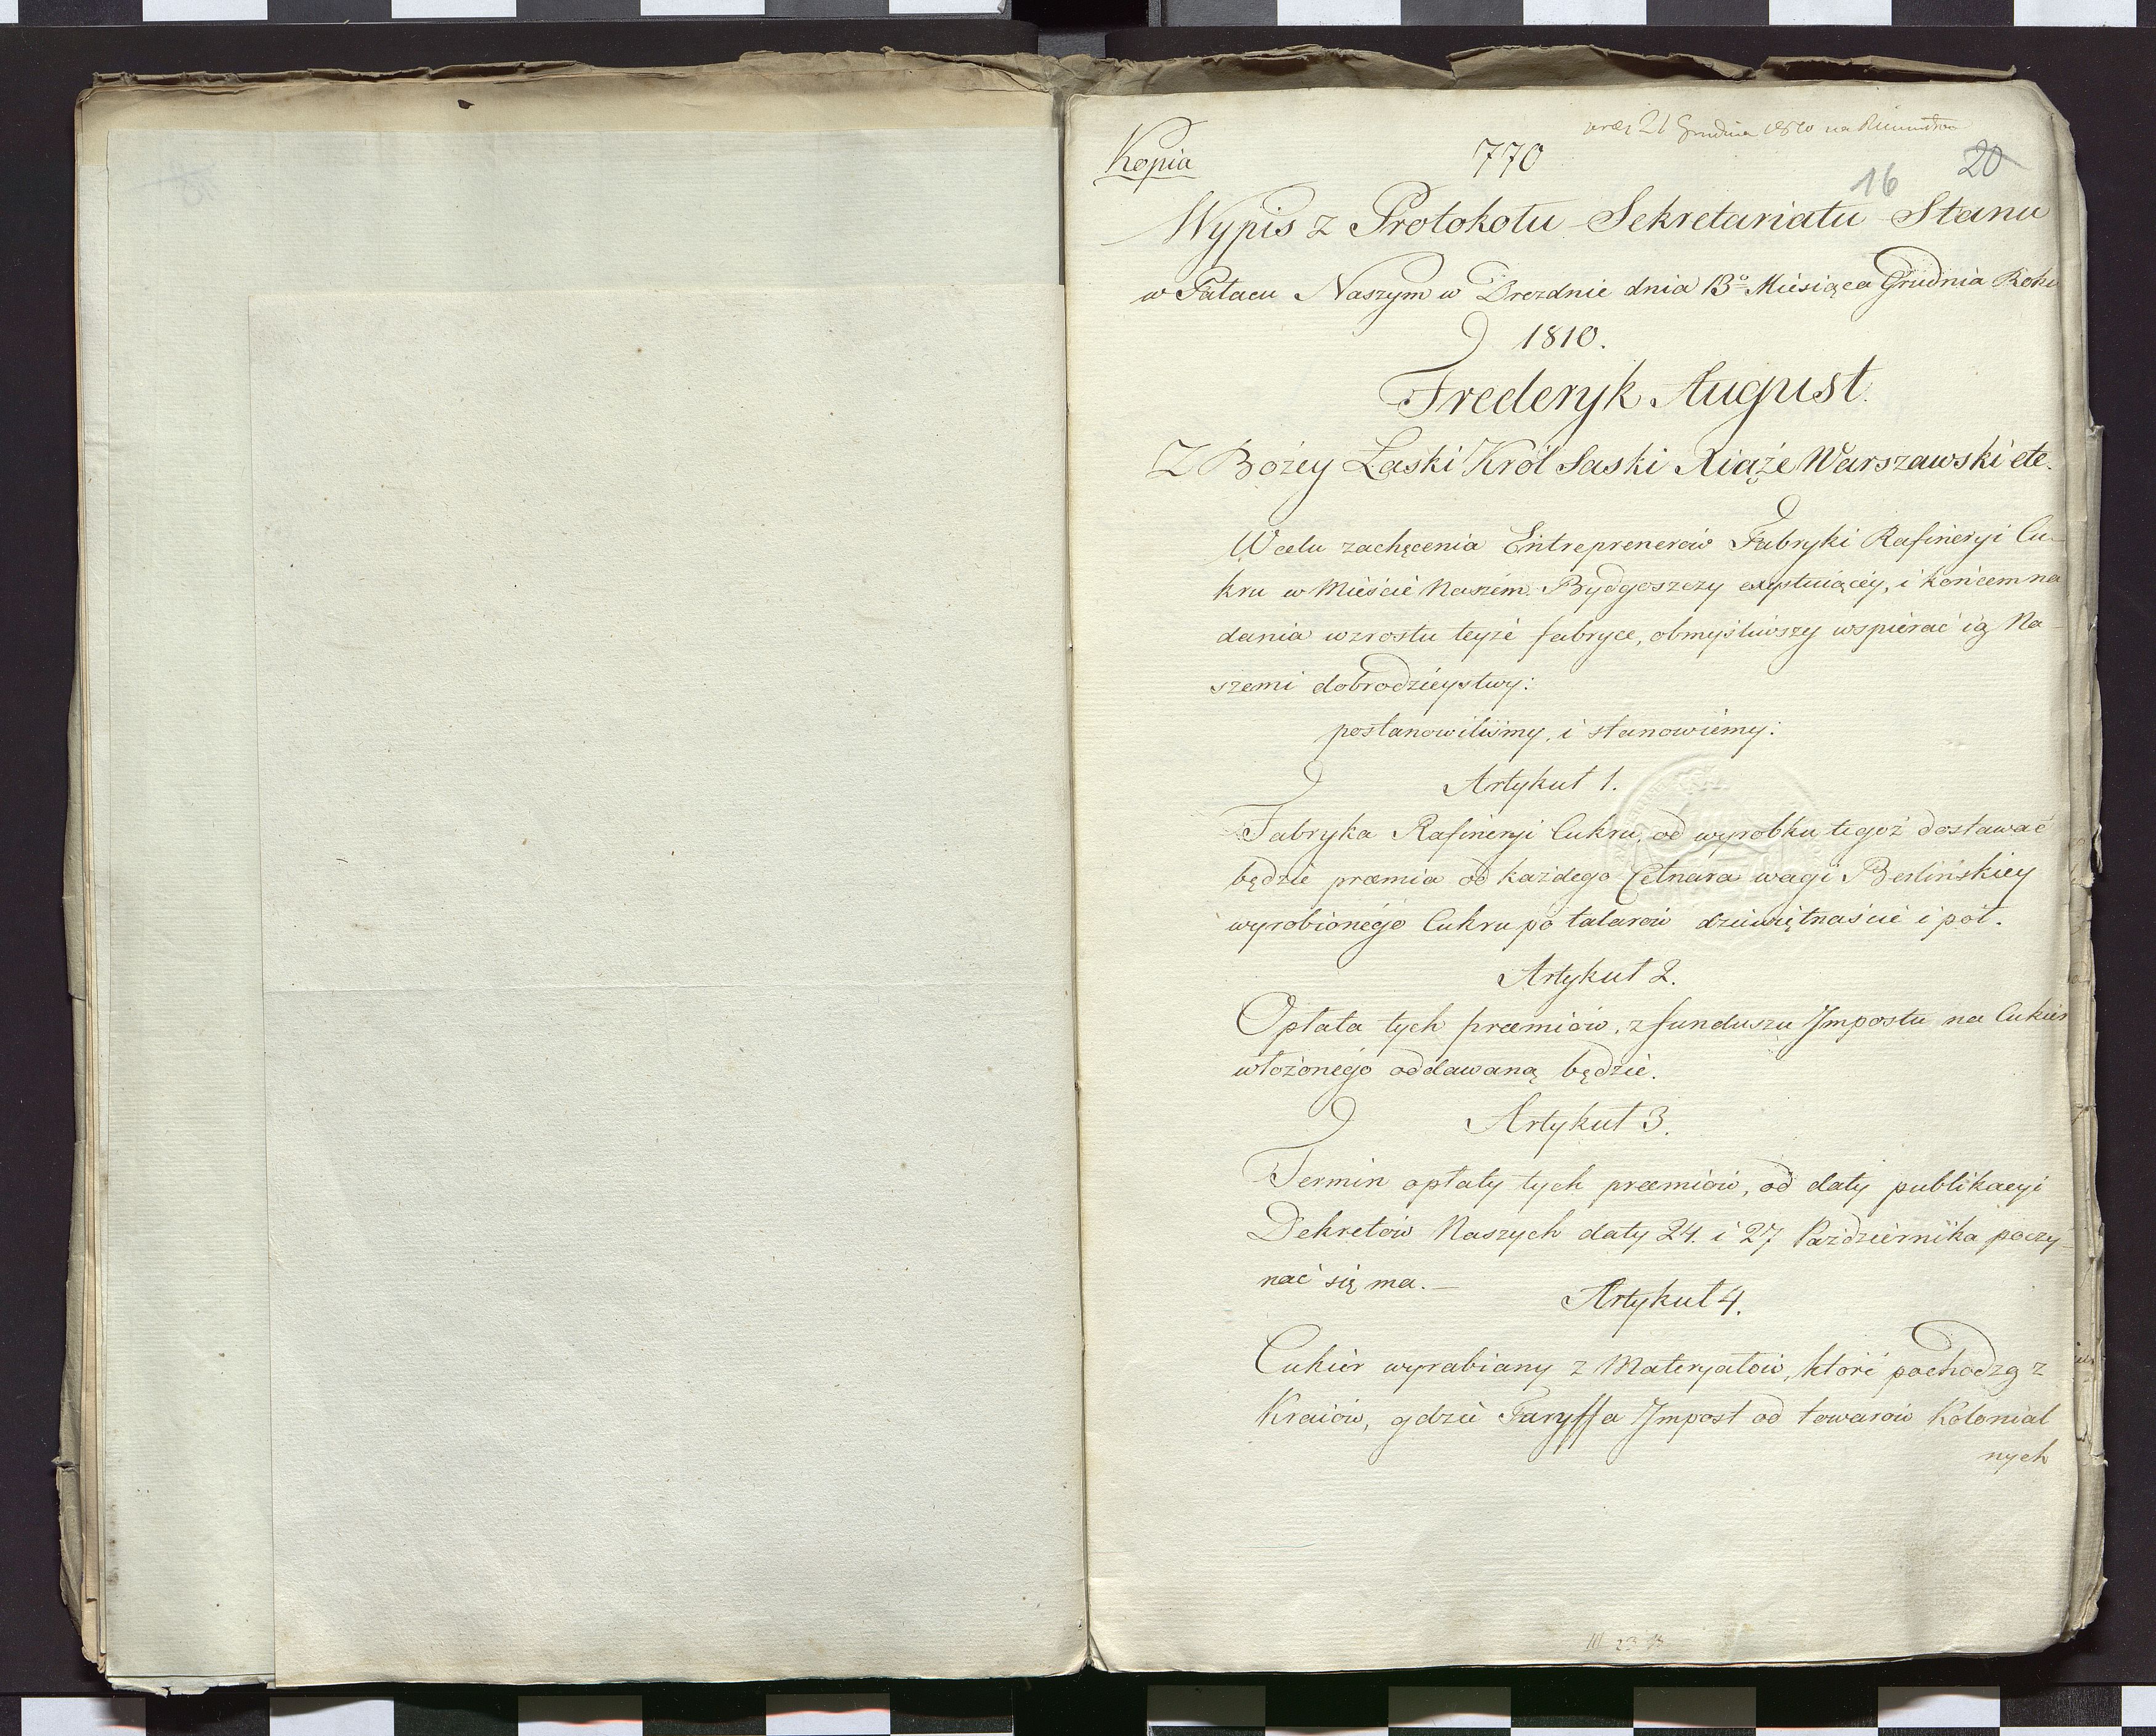 21 Grudnia 1810 na
Kopia
770
20
16
Wypis z Protokołu Sekretariatu Stanu
w Pałacu Naszym w Dreznie dnia 13º Miesiąca Grudnia Roku
1810.
Frederyk August.
Z Bożey Łaski Król Saski Xiąże Warszawski etc.
W celu zachęcenia Entreprenerów Fabryki Rafineryi Cu-
kru w Mieście Naszem Bydgoszczy exystuiącéy, i końcem na
dania wzrostu teyże fabryce, obmyśliwszy wspierać ią Na-
szemi dobrodzieystwy:
postanowiliśmy, i stanowiemy:
Artykuł 1.
Fabryka Rafineryi Cukru, od wyrobku tegoż dostawać
będzie præmia od każdego Cetnara wagi Berlińskiey
wyrobionego Cukru po talarów dziewiętnaście i pół.
Artykuł 2.
Opłata tych præmiów, z funduszu Impostu na Cukier
włożonego oddawaną będzie.
Artykuł 3.
Termin opłaty tych præmiów, od daty publikacyi
Dekretów Naszych daty 24. i 27 Października poczy-
nać się ma.-
Artykuł 4.
Cukier wyrabiany z Materyałów, któré pochodzą z
Kraiów, gdzie Taryffa Impost od towarów Kolonial
nych